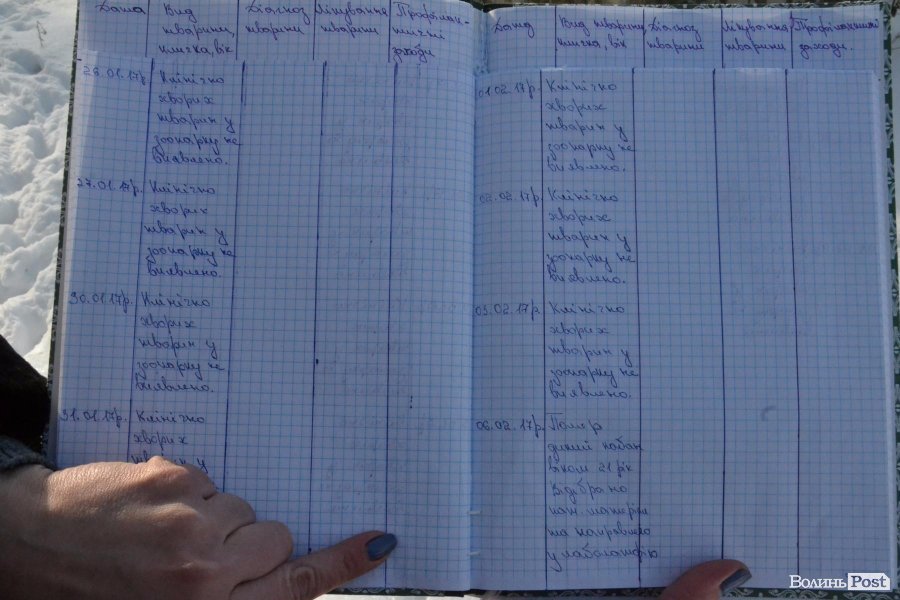 Дата
Вид
тварини,
кличка, вік
Діагноз
тварини
Лікування
тварини
Профілак-
тичні
заходи
26.01.17р. Клінічно
хворих
тварин у
зоопарку не
виявлено.
27.01.17р. Клінічно
хворих
тварин у
зоопарку не
виявлено.
30.01.17р. Клінічно
хворих
тварин у
зоопарку не
виявлено.
31.01.17р. Клінічно
хворих
тварин у
Дата
Вид тварини,
кличка, вік
Діагноз
тварини
Лікування
тварини
Профілактичні
заходи.
01.02.17р. Клінічно
хворих
тварин у
зоопарку не
виявлено.
02.02.17р. Клінічно
хворих
тварин у
зоопарку не
виявлено.
03.02.17р. Клінічно
хворих
тварин у
зоопарку не
виявлено.
06.02.17р. Помер
дикий кабан
віком 21 рік
Відібрано
пат. матеріал
та направлено
у лабораторію
ВолиньPost